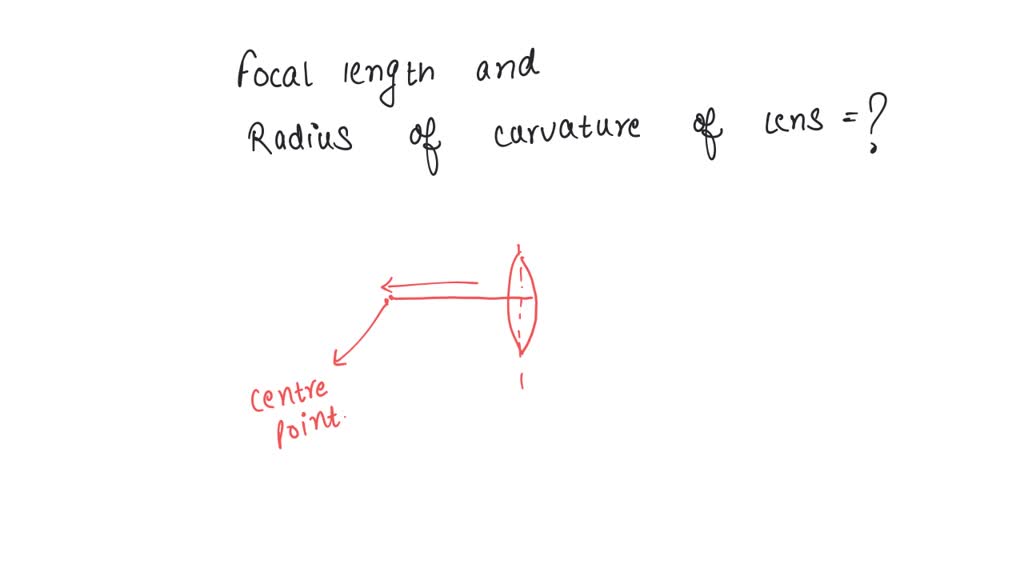 focal length and
Radius of carvature of lens = ?
centre
point.